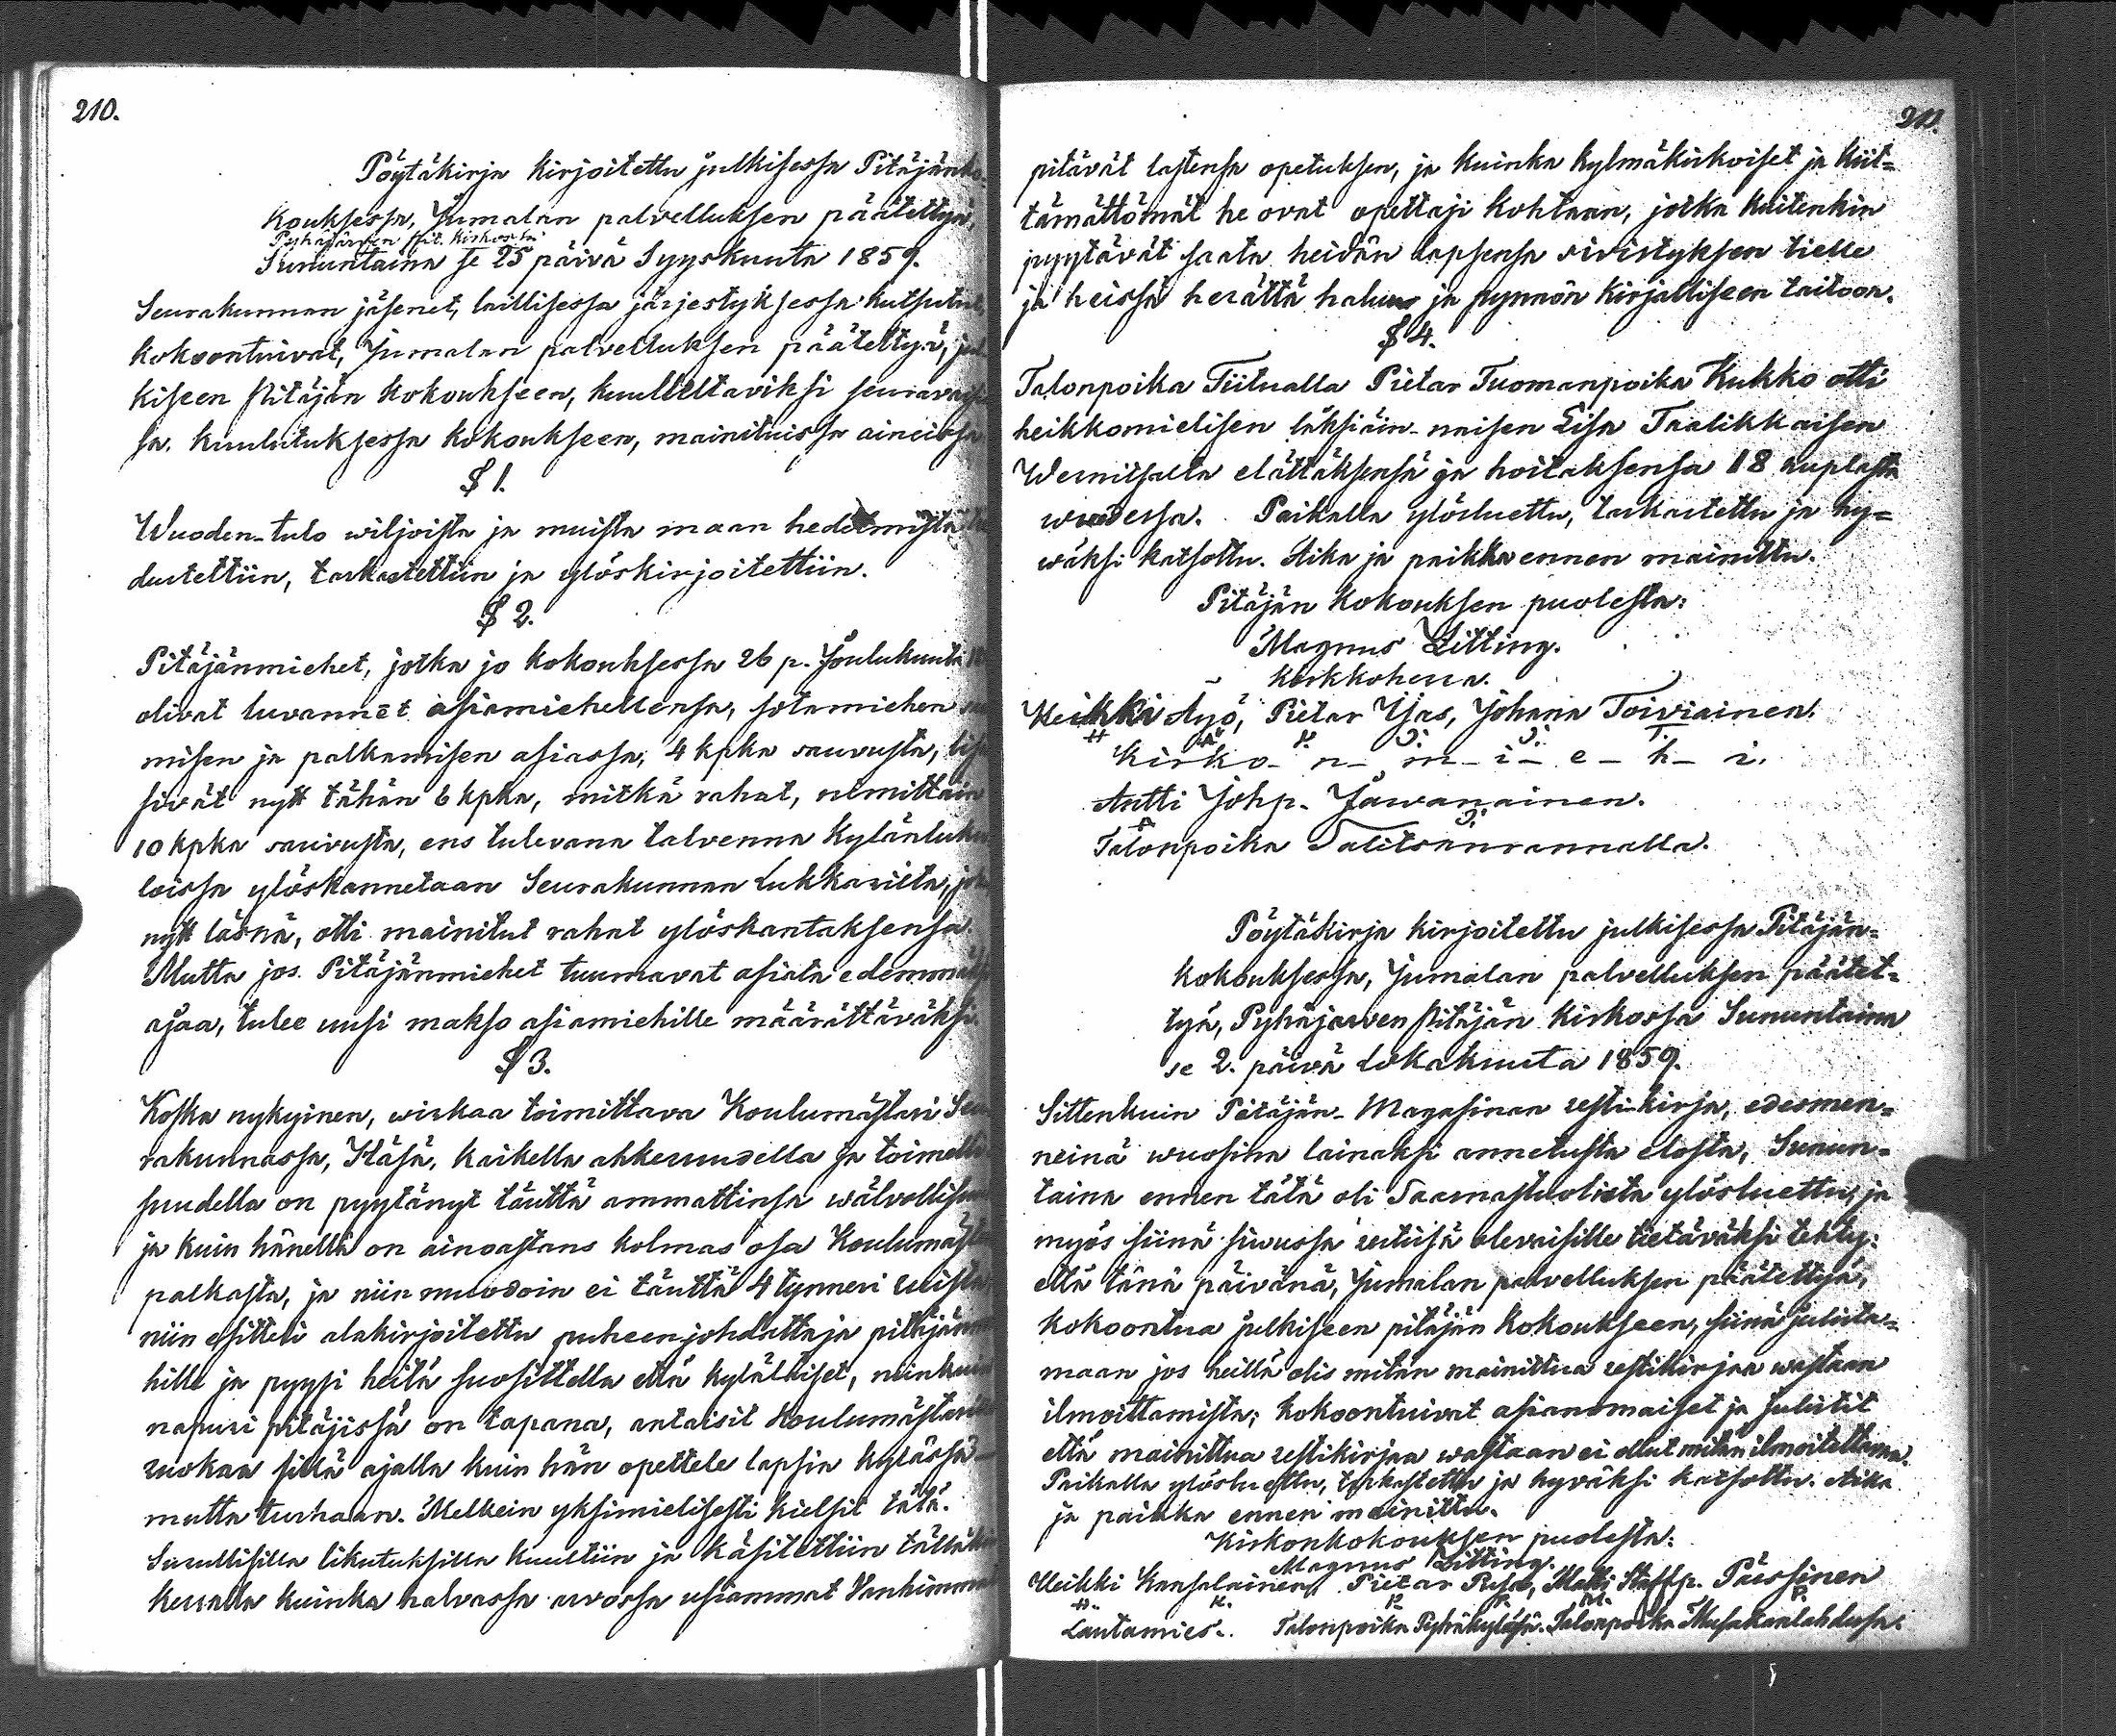 210.
Pöytäkirja kirjoitettu julkisessa Pitäjän
kouksessa, Jumalan palvelluksen päätettyä,
Pyhäjärven pit. kirkossa
Sununtaina se 25 päivä Syyskuuta 1859.
Seurakunnan jäsenet, laillisessa järjestyksessa kutsutut,
kokoontuivat, Jumalan palvelluksen päätettyä, jul
kiseen Pitäjän kokoukseen, kuulleltaviksi seuravaisi
sa. kuulutuksessa kokoukseen, mainituissa aineissa
§ 1.
Wuoden-tulo wiljoista ja muista maan hedelmistä
dustettiin, tarkastettiin ja ylöskirjoitettiin.
§ 2.
Pitäjänmiehet, jotka jo kokouksessa 26 p. Joulukuuta
olivat luvannet asiamiehellensa, sotamiehen
misen ja palkamisen asiassa, 4 kpka sauvusta, lis
sivät nytt tähän 6 kpka, mitkä rahat, nimittäin
10 kpka sauvusta, ens tulevana talvenna kylänluku
loissa ylöskannetaan Seurakunnan Lukkarilta, jo
nytt läsnä, otti mainitut rahat ylöskantaksensa.
Mutta jos Pitäjänmiehet tuumavat asiata edemmä
ajaa, tulee uusi makso asiamiehille määrättäväksi.
§ 3.
Koska nykyinen, wirkaa toimittava Koulumästari Seu
rakunnassa, Häsä, kaikella ahkeruudella ja toimelli
suudella on pyytänyt täuttä ammattinsa wälvollisuu
ja kuin hänellä on ainoastans kolmas osa Koulumästa
palkasta, ja niin muodoin ei täuttä 4 tynneri ruista,
niin esitteli alakirjoitettu puheenjohdattaja pitäjänmi
hille ja pyysi heitä suosittella että kyläläiset, niinkuin
napuri pitäjissä on tapana, antaisit Koulumästarille
ruokaa sillä ajalla kuin hän opettele lapsia kylässä
mutta turhaan. Melkein yksimielisesti kielsit tätä.
Surullisilla likutuksilla kuultiin ja käsitettiin tällä
kerralla kuinka halvassa arvossa usiammat Vanhimma
211.
pitävät lastensa opetuksen, ja kuinka kylmäkiskoiset ja kiit=
tämättömät he ovat opettaji kohtaan, jotka kuitenkin
pyytävät saata heidän lapsensa sivistyksen tielle
ja heissä herättä halun ja pynnön kirjalliseen taitoon.
§ 4.
Talonpoika Tiitualla Pietar Tuomanpoika Kukko otti
heikkomielisen läksiäin-naisen Lisa Taalikkaisen
Wernitsalta elättäksensä ja hoitaksensa 18 ruplasta
wuodessa. Paikalla ylösluettu, tarkastettu ja hy=
wäksi katsottu. Aika ja paikka ennen mainittu.
Pitäjän kokouksen puolesta:
Magnus Zitting.
kirkkoherra.
Heikki Äyö, Pietar Ijas, Johana Toiviainen.
Kirko- n- m- i- e- h- i.
Antti Johp. Jäwanainen.
Talonpoika Salitsanrannalla.
Pöytäkirja kirjoitettu julkisessa Pitäjän=
kokouksessa, Jumalan palvelluksen päätet=
tyä, Pyhäjärven pitäjän kirkossa Sununtaina
se 2. päivä Lokakuuta 1859.
Sittenkuin Pitäjän-Magasinan restikirja, edesmen=
neinä wuosina lainaksi annetusta elosta, Sunun=
taina ennen tätä oli Saarnastuolista ylösluettu, ja
myös siinä siwussa restisä olevaisille tietäväksi tehty:
että tänä päivänä, Jumalan palvelluksen päätettyä,
kokoontua julkiseen pitäjän kokoukseen, siinä julista=
maan jos heillä olis mitän mainittua restikirjaa wastaan
ilmoittamista; kokoontuivat asianomaiset ja julistit
että mainittua restikirjaa wastaan ei ollut mitän ilmoitettavaa.
Paikalla ylösluettu, tarkastettu ja hyväksi katsottu. Aika
ja paikka ennen mainittu.
Kirkonkokouksen puolesta:
Magnus Zitting.
Heikki Kansalainen, Pietar Pusa, Matti Staffp. Pässinen
Lautamies. Talonpoika Pyhäkylässä. Talonpoika Musakanlahdessa.